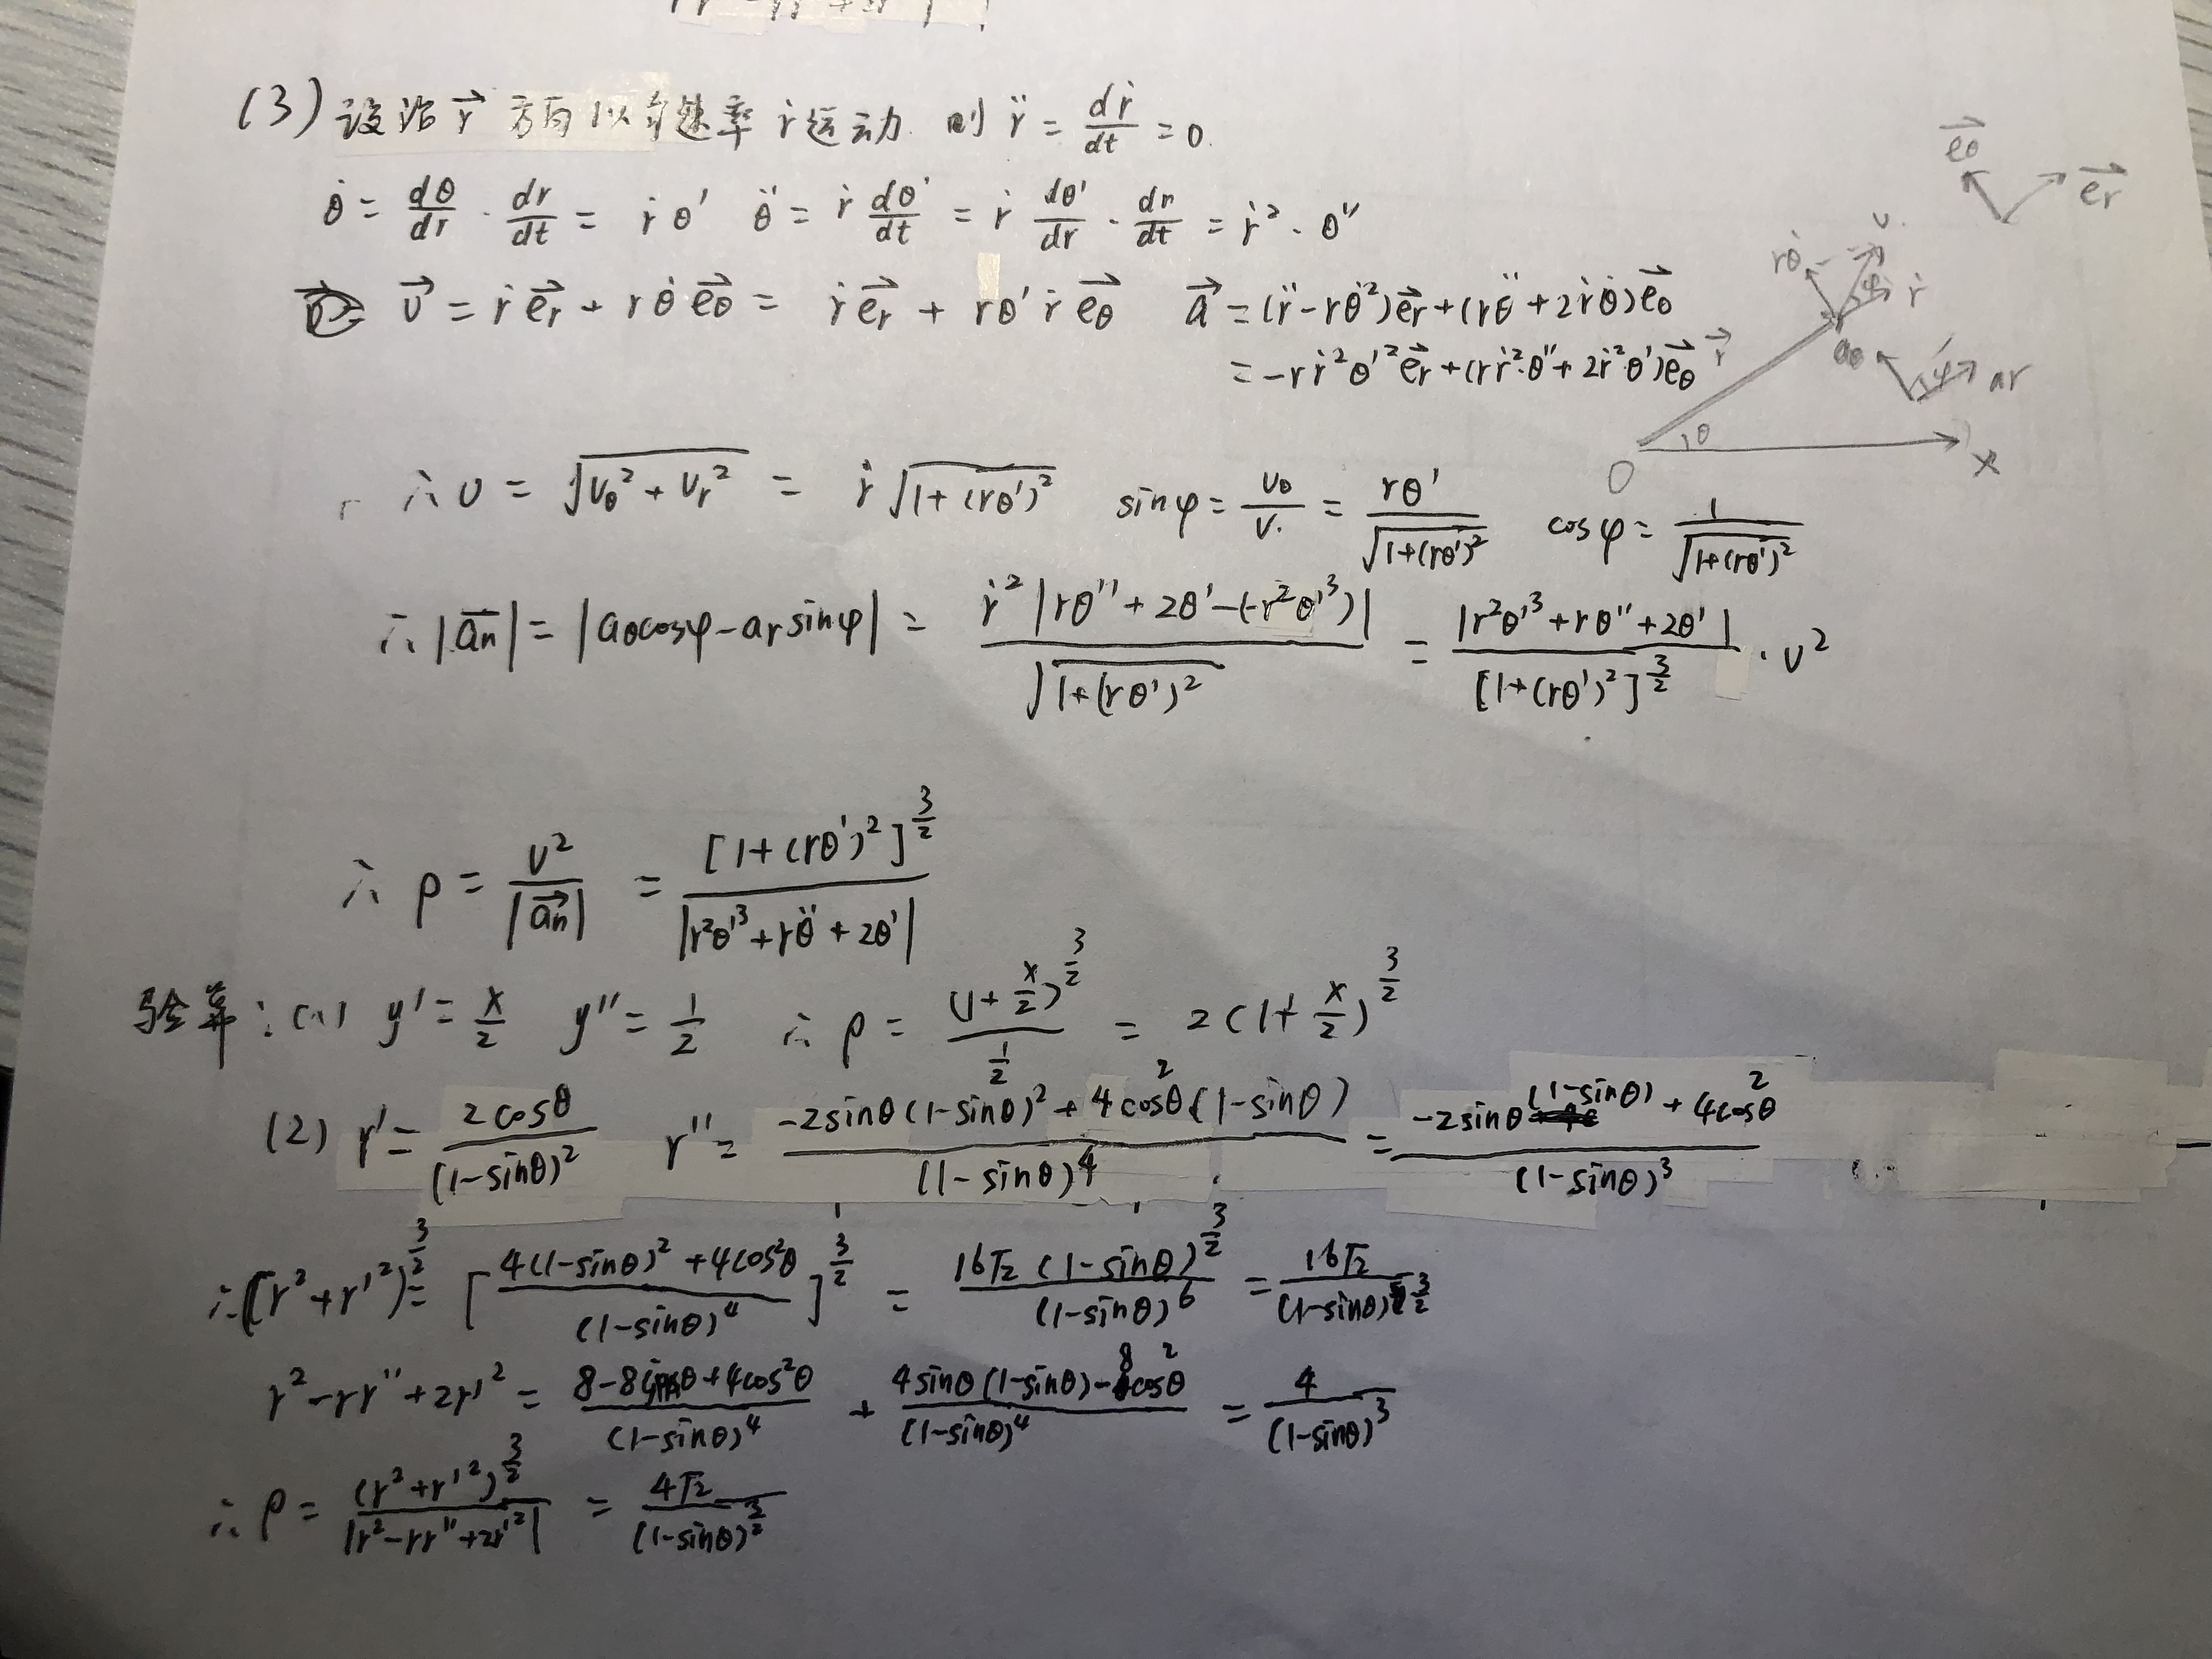 (3) 设沿 r⃗ 方向以匀速率 ṙ 运动. 则 r̈ = dṙ/dt = 0.
θ̇ = dθ/dr · dr/dt = ṙθ' θ̈ = ṙ dθ'/dt = ṙ dθ'/dr · dr/dt = ṙ² · θ''
v⃗ = ṙe⃗r + rθ̇e⃗θ = ṙe⃗r + rθ'ṙe⃗θ a⃗ = (r̈-rθ̇²)e⃗r + (rθ̈+2ṙθ̇)e⃗θ
= -rṙ²θ'²e⃗r + (rṙ²·θ''+2ṙ²θ')e⃗θ
e⃗θ e⃗r
rθ̇ v. φ ṙ
r⃗ aθ φ ar
O θ x
∴ v = √(vθ² + vr²) = ṙ√(1+(rθ')²) sinφ = vθ/v. = rθ'/√(1+(rθ')²) cosφ = 1/√(1+(rθ')²)
∴ |a⃗n| = |aθcosφ - ar sinφ| = ṙ²|rθ''+2θ'-(-r²θ'³)|/√(1+(rθ')²) = |r²θ'³+rθ''+2θ'|/[1+(rθ')²]^(3/2) · v²
∴ ρ = v²/|a⃗n| = [1+(rθ')²]^(3/2)/|r²θ'³+rθ̈+2θ'|
验算: (1) y' = x/2 y'' = 1/2 ∴ ρ = (1+x/2)^(3/2)/(1/2) = 2(1+x/2)^(3/2)
(2) r' = 2cosθ/(1-sinθ)² r'' = (-2sinθ(1-sinθ)²+4cos²θ(1-sinθ))/(1-sinθ)⁴ = (-2sinθ(1-sinθ)+4cos²θ)/(1-sinθ)³
∴ (r²+r'²)^(3/2) = [(4(1-sinθ)²+4cos²θ)/(1-sinθ)⁴]^(3/2) = 16√2(1-sinθ)^(3/2)/(1-sinθ)⁶ = 16√2/(1-sinθ)
r²-rr''+2r'² = (8-8sinθ+4cos²θ)/(1-sinθ)⁴ + (4sinθ(1-sinθ)-8cos²θ)/(1-sinθ)⁴ = 4/(1-sinθ)³
∴ ρ = (r²+r'²)^(3/2)/|r²-rr''+2r'²| = 4√2/(1-sinθ)^(3/2)